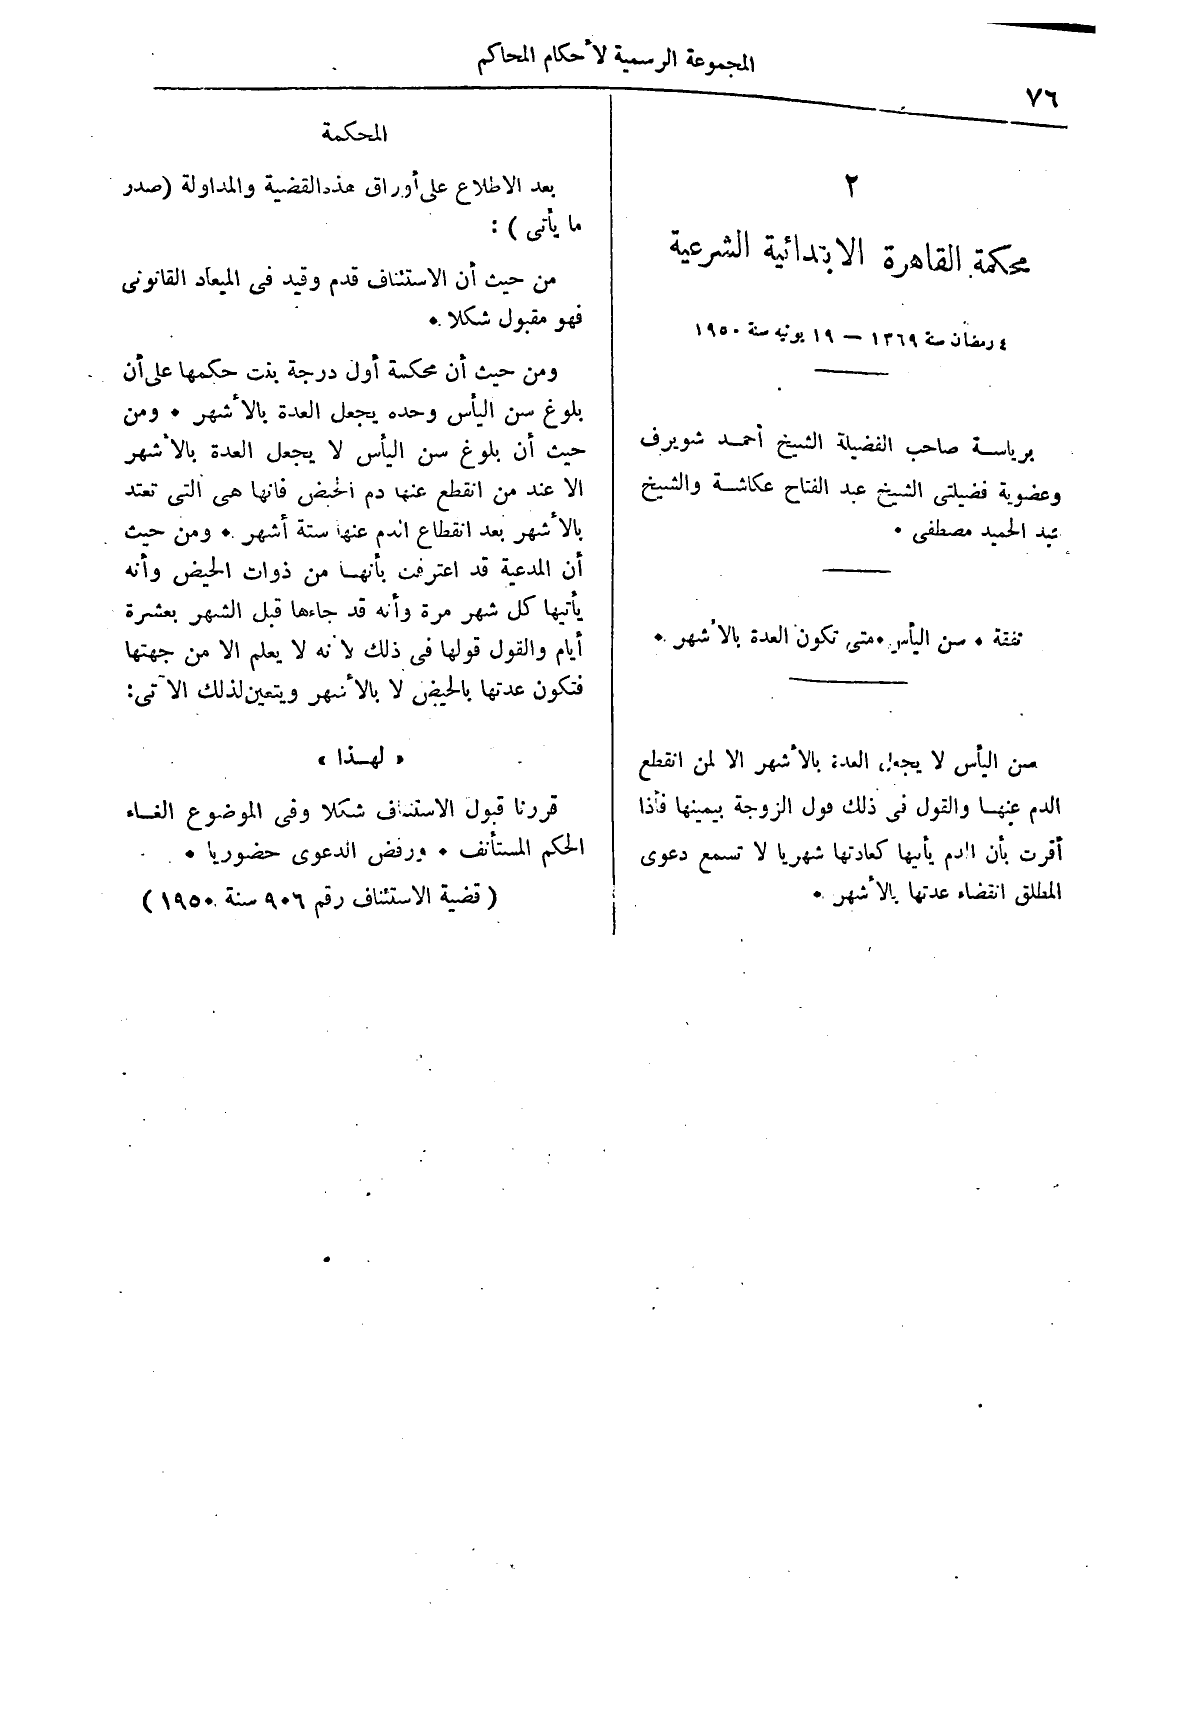 المجموعة الرسمية لأحكام المحاكم
٧٦
٢
محكمة القاهرة الابتدائية الشرعية
٤ رمضان سنة ١٣٦٩ — ١٩ يونيه سنة ١٩٥٠
برياسة صاحب الفضيلة الشيخ أحمد شويرف
وعضوية فضيلتى الشيخ عبد الفتاح عكاشة والشيخ
عبد الحميد مصطفى .
نفقة . سن اليأس . متى تكون العدة بالأشهر .
سن اليأس لا يجعل العدة بالأشهر الا لمن انقطع
الدم عنها والقول فى ذلك قول الزوجة بيمينها فأذا
أقرت بأن الدم يأتيها كعادتها شهريا لا تسمع دعوى
المطلق انقضاء عدتها بالأشهر .
المحكمة
بعد الاطلاع على أوراق هذه القضية والمداولة (صدر
ما يأتى ) :
من حيث أن الاستئناف قدم وقيد فى الميعاد القانونى
فهو مقبول شكلا .
ومن حيث أن محكمة أول درجة بنت حكمها على أن
بلوغ سن اليأس وحده يجعل العدة بالأشهر . ومن
حيث أن بلوغ سن اليأس لا يجعل العدة بالأشهر
الا عند من انقطع عنها دم الحيض فانها هى التى تعتد
بالأشهر بعد انقطاع الدم عنها ستة أشهر . ومن حيث
أن المدعية قد اعترفت بأنها من ذوات الحيض وأنه
يأتيها كل شهر مرة وأنه قد جاءها قبل الشهر بعشرة
أيام والقول قولها فى ذلك لأنه لا يعلم الا من جهتها
فتكون عدتها بالحيض لا بالأشهر ويتعين لذلك الآتى :
« لهذا »
قررنا قبول الاستئناف شكلا وفى الموضوع الغاء
الحكم المستأنف . ورفض الدعوى حضوريا .
( قضية الاستئناف رقم ٩٠٦ سنة ١٩٥٠ )